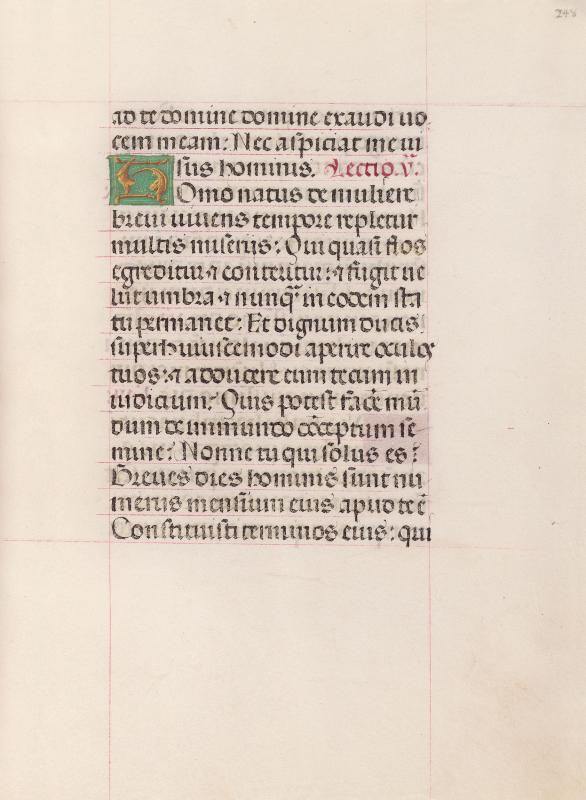 248
ad te domine domine exaudi uo
cem meam: Nec aspiciat me ui
sus hominis. Lectio. v.
Homo natus de muliere
breui uiuens tempore repletur
multis miseriis: Qui quasi flos
egreditur ⁊ conteritur: ⁊ fugit ue
lut umbra ⁊ nunqᷓ in eodem sta
tu permanet: Et dignum ducis
super huiuscemodi aperire oculos
tuos: ⁊ adducere eum tecum in
iudicium: Quis potest facẽ mũ
dum de immundo cõceptum se
mine: Nonne tu qui solus es?
Breues dies hominis sunt nu
merus mensium eius apud te ẽ
Constituisti terminos eius: qui